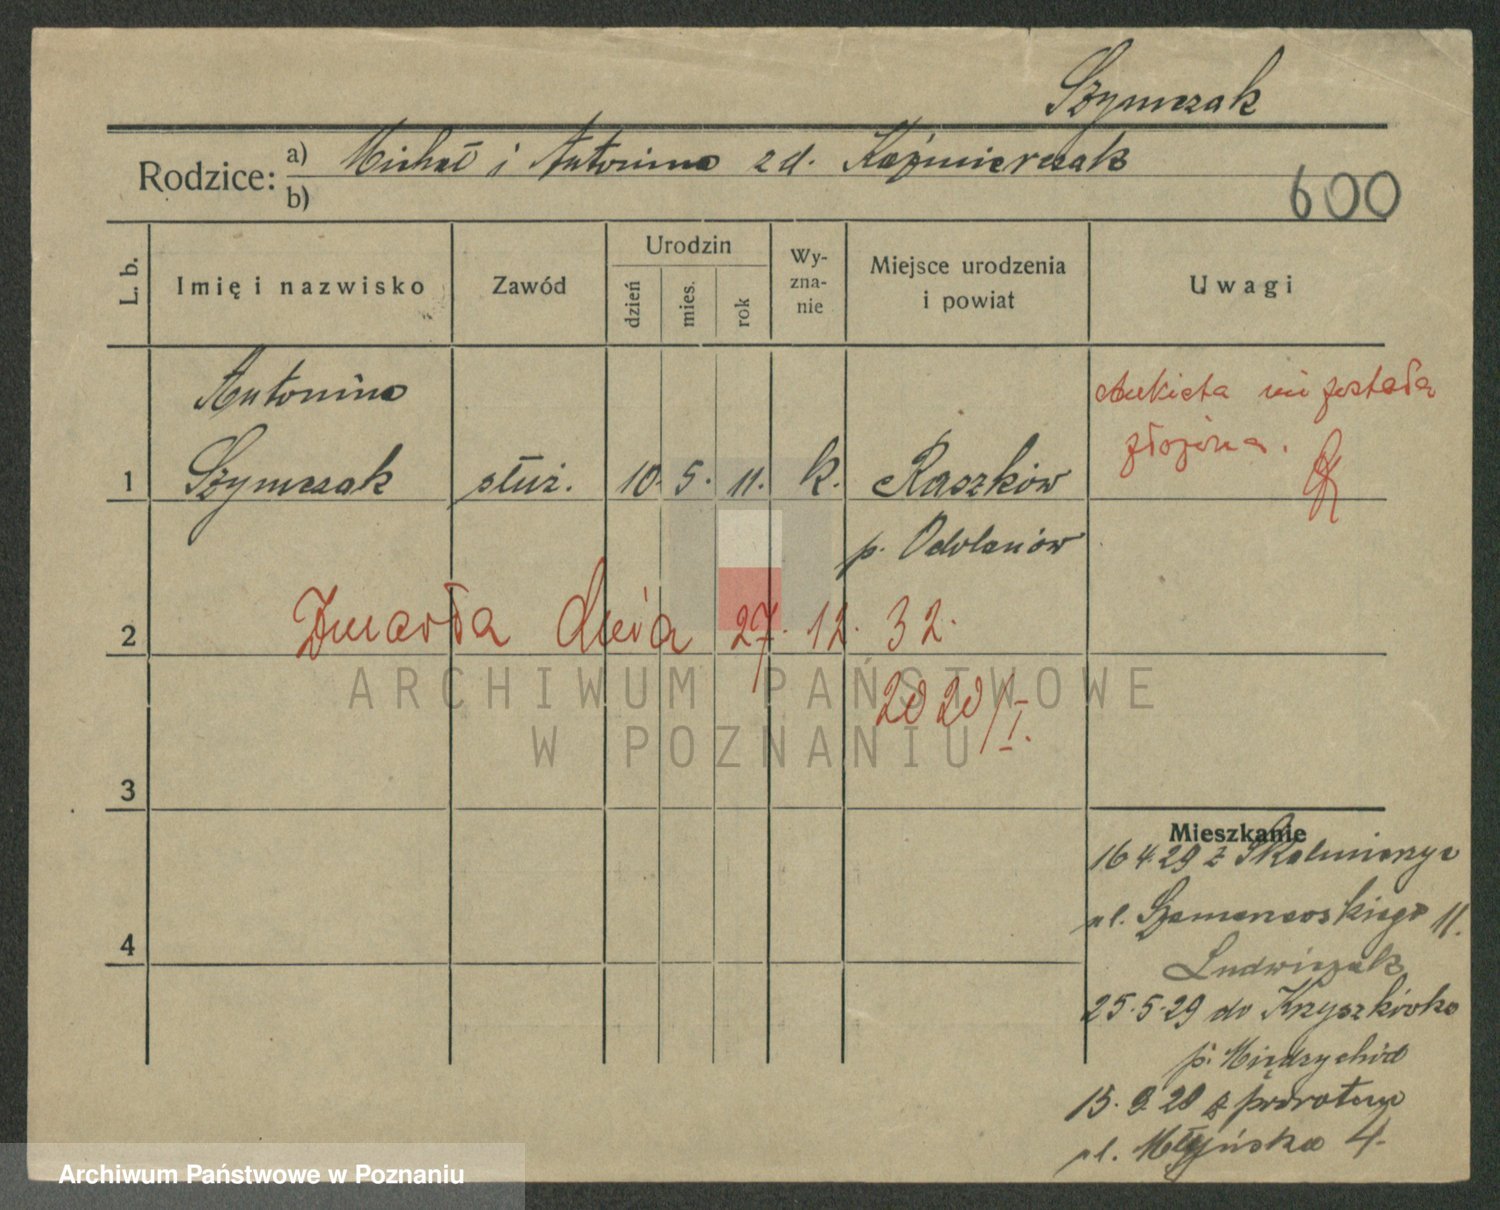 Szymczak
Rodzice: a) Michał i Antonina zd. Kaźmierczak
b)
600
L. b.
Imię i nazwisko
Zawód
Urodzin
dzień
mies.
rok
Wy-
zna-
nie
Miejsce urodzenia
i powiat
Uwagi
Antonina
Ankieta nie została
złożona.
1 Szymczak służ. 10. 5. 11. k. Raszków
p. Odolanów
2 Zmarła dnia 27. 12. 32.
2020/I.
ARCHIWUM PAŃSTWOWE
W POZNANIU
3
Mieszkanie
16 4. 29 z Skalmierzyc
ul. Szamarzewskiego 11.
4
Ludwiczak
25. 5. 29 do Krzyszkówko
p. Międzychód
15. 9. 29 z powrotem
ul. Młyńska 4.
Archiwum Państwowe w Poznaniu